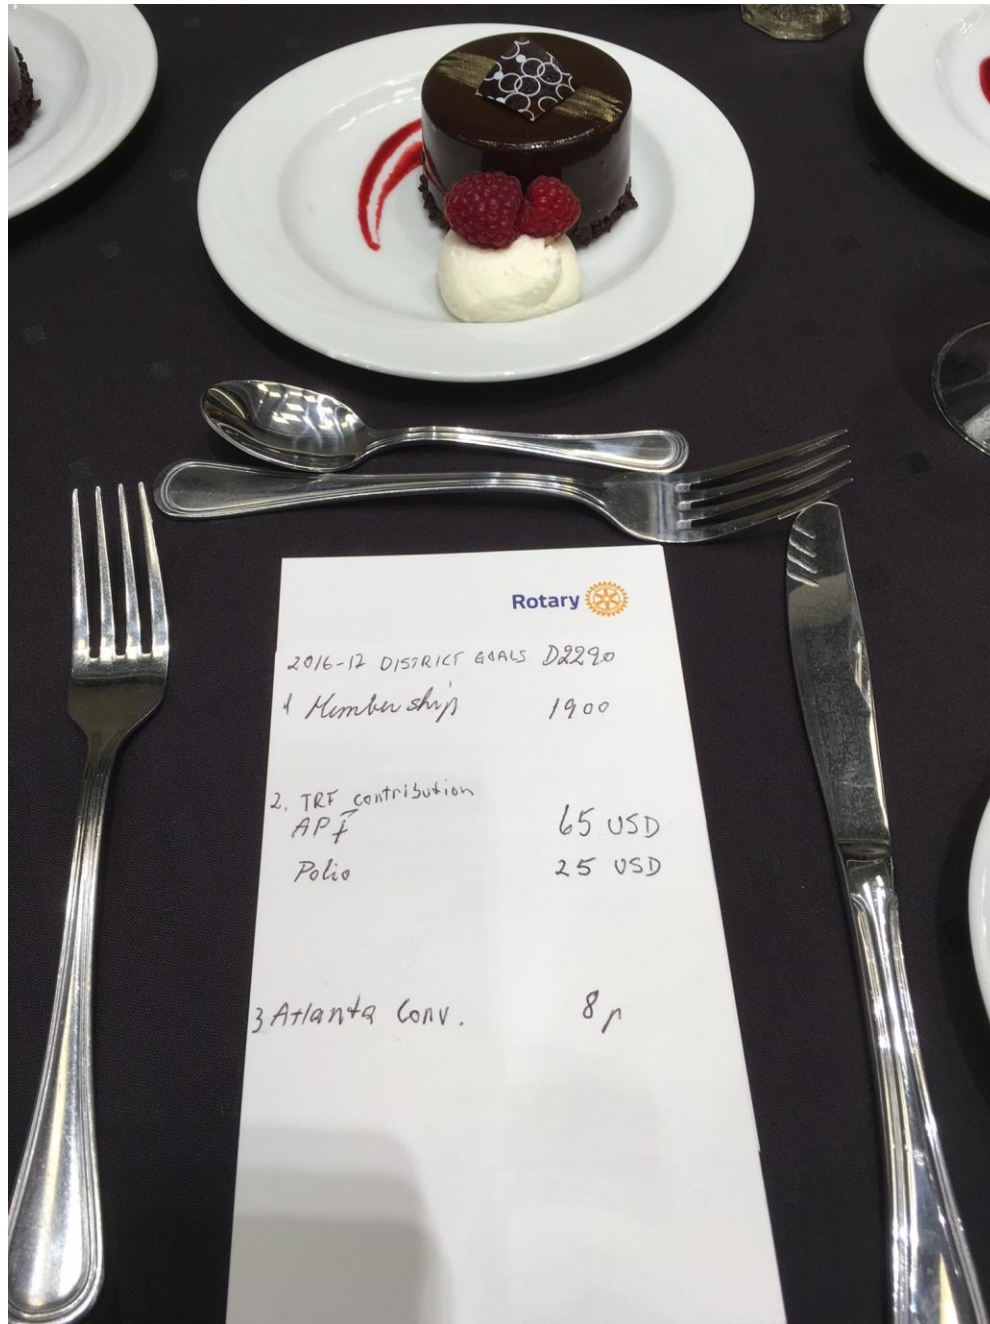 Rotary
2016-17 DISTRICT GOALS D2290
1 Membership 1900
2. TRF contribution
APF 65 USD
Polio 25 USD
3 Atlanta Conv. 8p